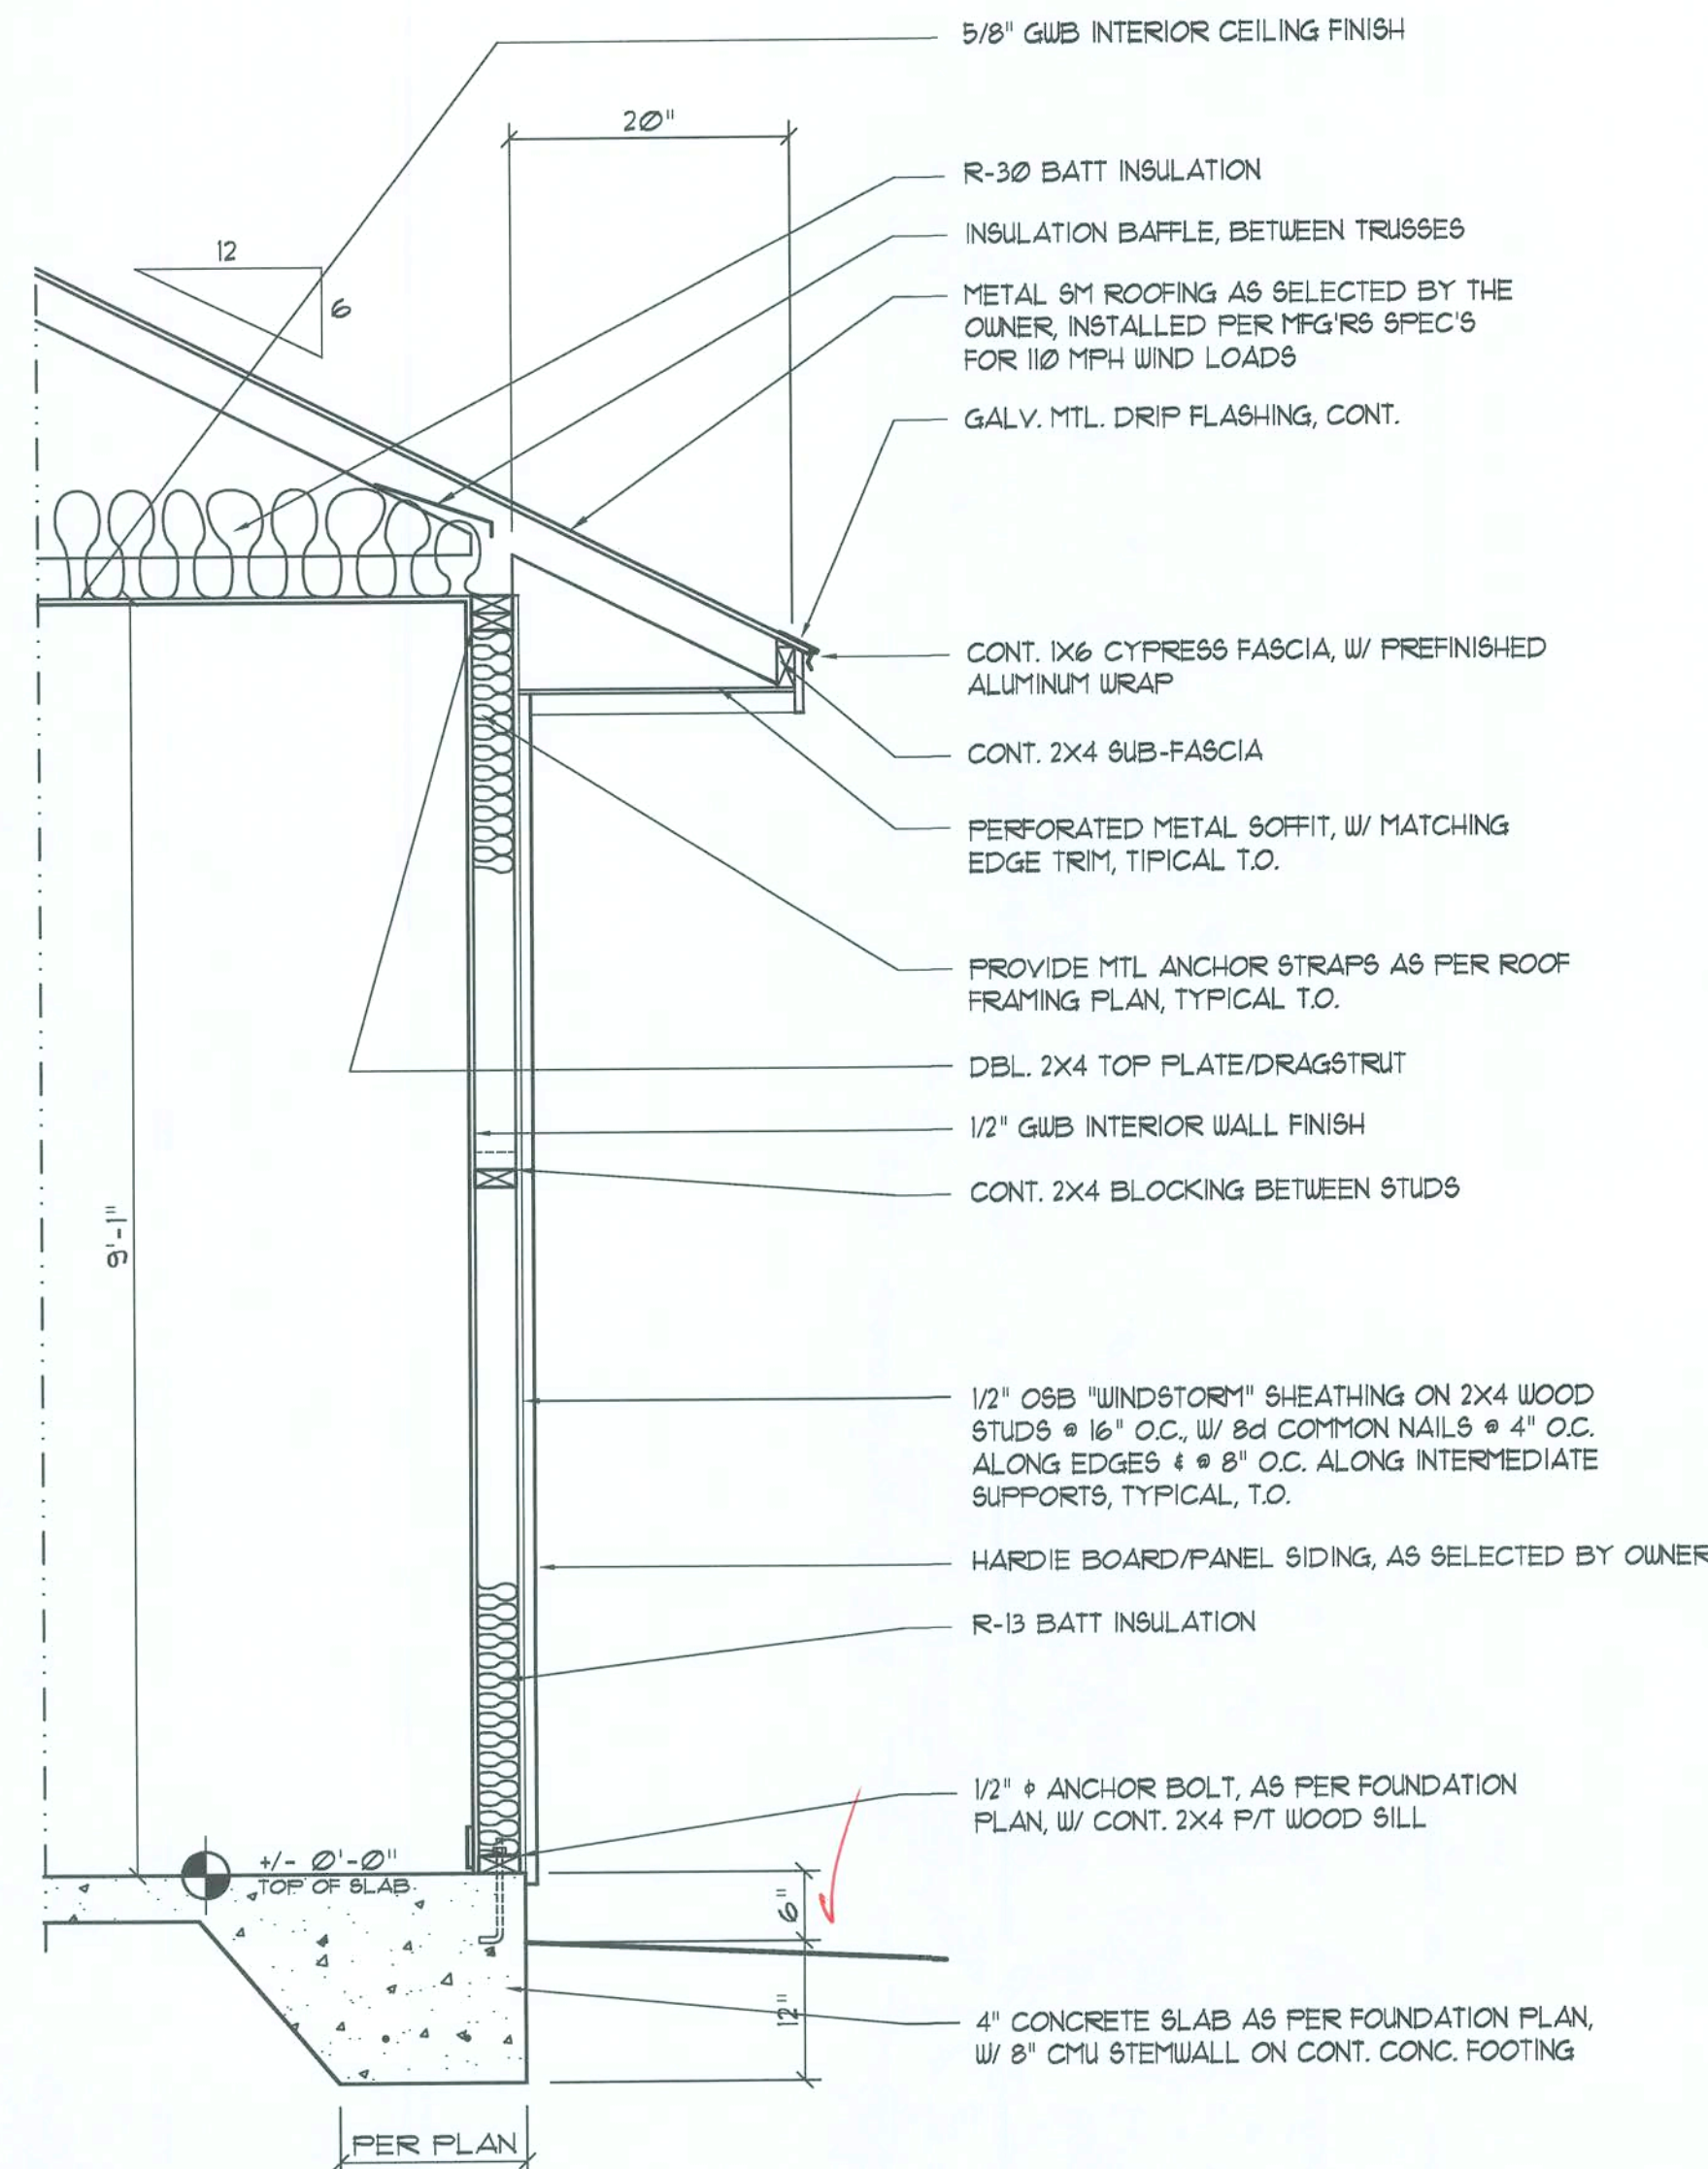 5/8" GWB INTERIOR CEILING FINISH
20"
R-30 BATT INSULATION
INSULATION BAFFLE, BETWEEN TRUSSES
12
6
METAL SM ROOFING AS SELECTED BY THE
OWNER, INSTALLED PER MFG'RS SPEC'S
FOR 110 MPH WIND LOADS
GALV. MTL. DRIP FLASHING, CONT.
CONT. 1X6 CYPRESS FASCIA, W/ PREFINISHED
ALUMINUM WRAP
CONT. 2X4 SUB-FASCIA
PERFORATED METAL SOFFIT, W/ MATCHING
EDGE TRIM, TIPICAL T.O.
PROVIDE MTL ANCHOR STRAPS AS PER ROOF
FRAMING PLAN, TYPICAL T.O.
DBL. 2X4 TOP PLATE/DRAGSTRUT
1/2" GWB INTERIOR WALL FINISH
CONT. 2X4 BLOCKING BETWEEN STUDS
9'-1"
1/2" OSB "WINDSTORM" SHEATHING ON 2X4 WOOD
STUDS @ 16" O.C., W/ 8d COMMON NAILS @ 4" O.C.
ALONG EDGES & @ 8" O.C. ALONG INTERMEDIATE
SUPPORTS, TYPICAL, T.O.
HARDIE BOARD/PANEL SIDING, AS SELECTED BY OWNER
R-13 BATT INSULATION
1/2" ϕ ANCHOR BOLT, AS PER FOUNDATION
PLAN, W/ CONT. 2X4 P/T WOOD SILL
+/- 0'-0"
TOP OF SLAB
6"
12"
4" CONCRETE SLAB AS PER FOUNDATION PLAN,
W/ 8" CMU STEMWALL ON CONT. CONC. FOOTING
PER PLAN